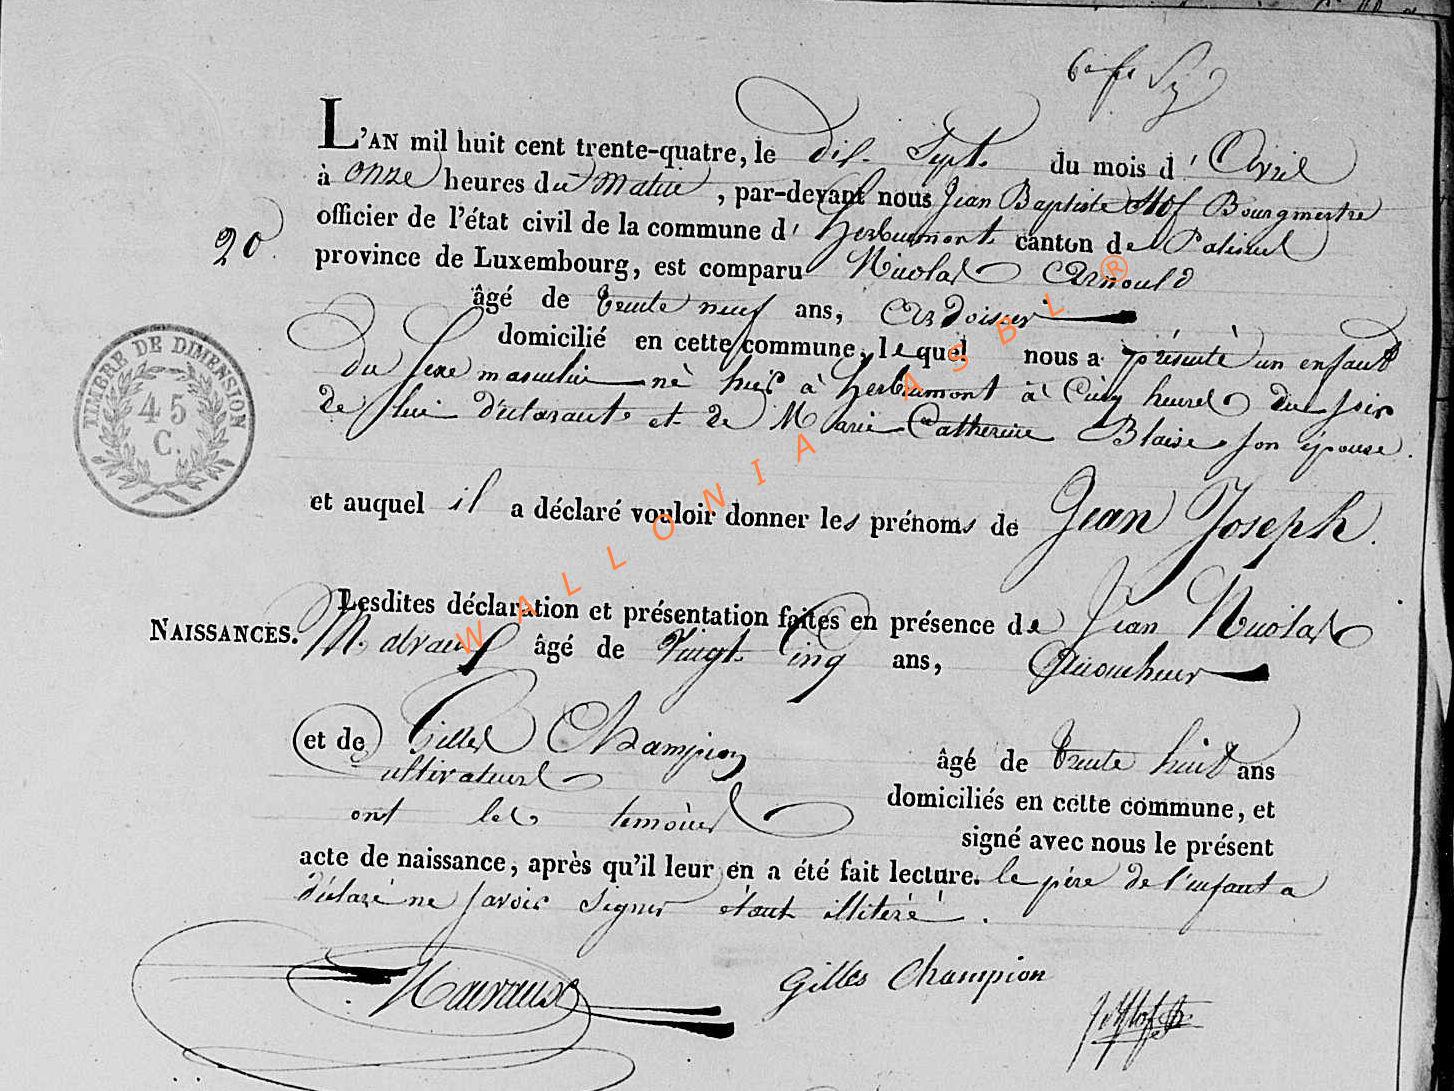 L'AN mil huit cent trente-quatre, le dix Sept du mois d'Avril
à onze heures du Matin, par-devant nous Jean Baptiste Hof Bourgmestre
officier de l'état civil de la commune d'herbeumont canton de Paliseul
20.
province de Luxembourg, est comparu Nicolas Arnould
âgé de trente neuf ans, Ardoisier
domicilié en cette commune, lequel nous a présenté un enfant
du sexe masculin né hier à herbeumont à Cinq heures du soir
de lui déclarant et de Marie Catherine Blaise son épouse.
TIMBRE DE DIMENSION
45
C.
et auquel il a déclaré vouloir donner les prénoms de Jean Joseph.
Lesdites déclaration et présentation faites en présence de Jean Nicolas
NAISSANCES.
âgé de Vingt Cinq ans,
et de Gilles Champion âgé de trente huit ans
cultivateur domiciliés en cette commune, et
ont les temoins signé avec nous le présent
acte de naissance, après qu'il leur en a été fait lecture. le père de l'enfant a
déclaré ne savoir signer étant illiteré.
Gilles Champion
WALLONIA ASBL ®